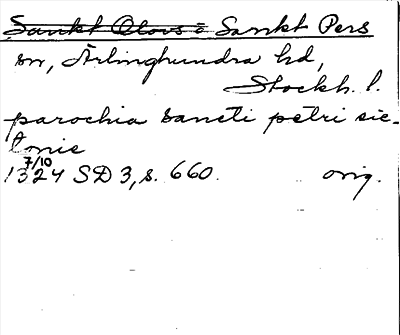 Sankt Olovs = Sankt Pers
sn, Ärlinghundra hd,
Stockh. l.
parochia sancti petri sic-
tonie
7/10
1324 SD 3, s. 660. orig.